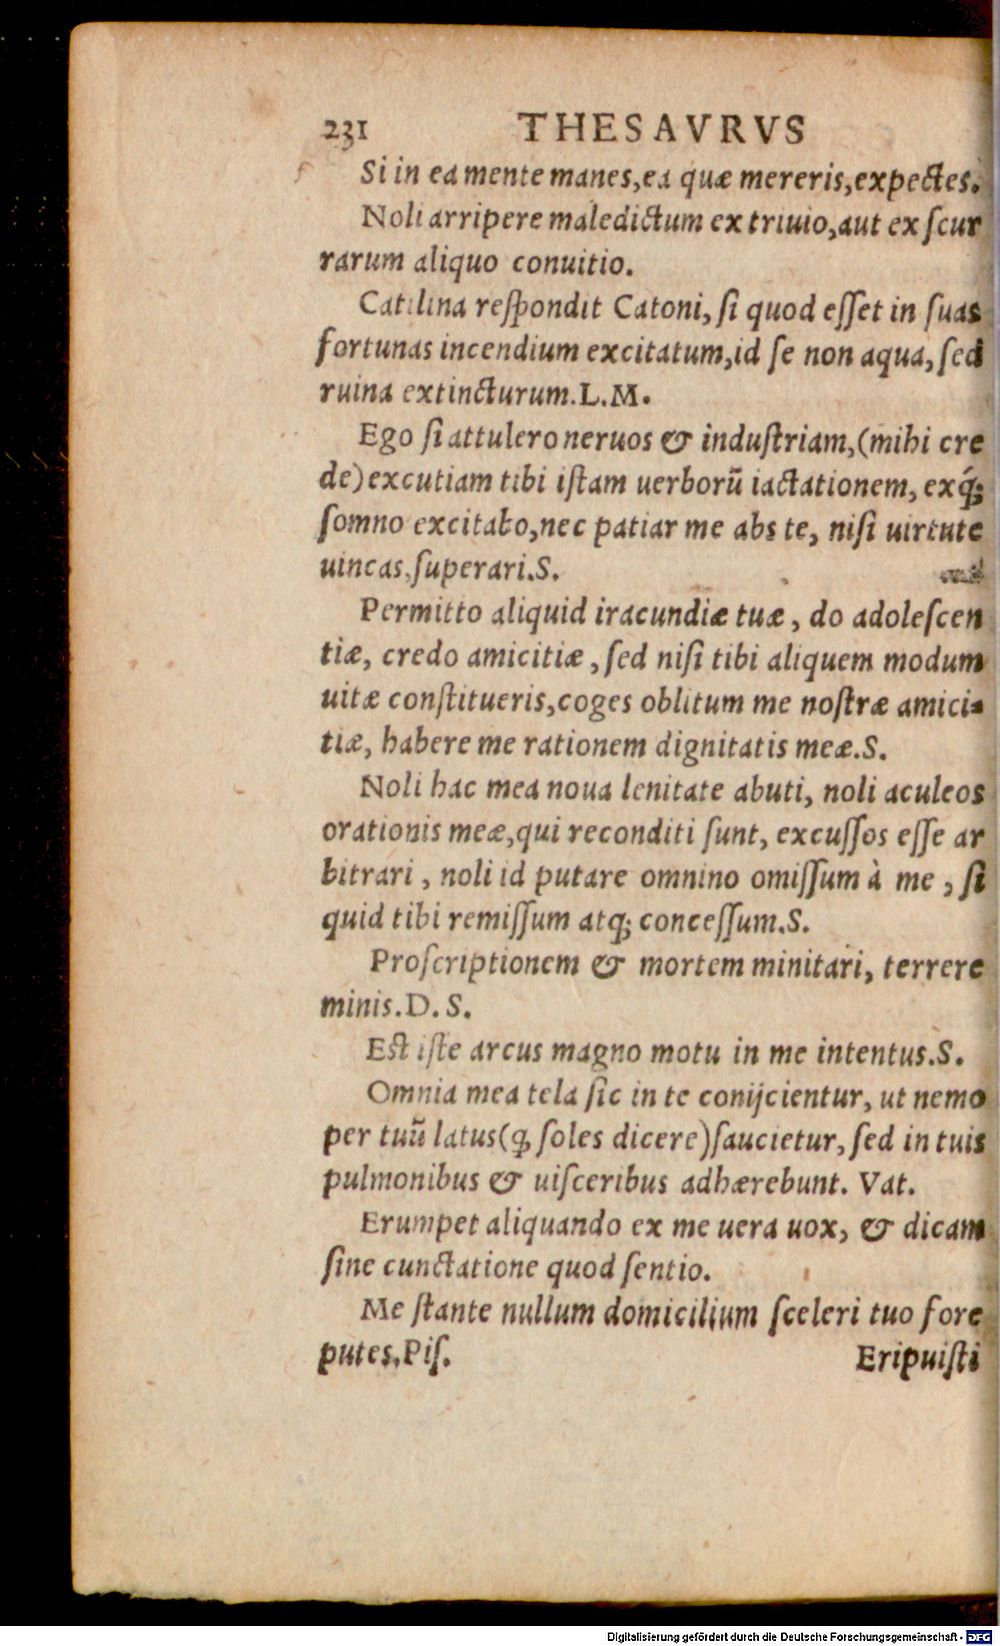 231 THESAVRVS
Si in ea mente manes,ea quæ mereris,expectes.
Noli arripere maledictum ex triuio,aut ex ſcur
rarum aliquo conuitio.
Catilina reſpondit Catoni, ſi quod eſſet in ſuas
fortunas incendium excitatum,id ſe non aqua, ſed
ruina extincturum.L.M.
Ego ſi attulero neruos & induſtriam,(mihi cre
de)excutiam tibi iſtam uerborũ iactationem, exq́;
ſomno excitabo,nec patiar me abs te, niſi uirtute
uincas,ſuperari.S.
Permitto aliquid iracundiæ tuæ, do adoleſcen
tiæ, credo amicitiæ, ſed niſi tibi aliquem modum
uitæ conſtitueris,coges oblitum me noſtræ amici-
tiæ, habere me rationem dignitatis meæ.S.
Noli hac mea noua lenitate abuti, noli aculeos
orationis meæ,qui reconditi ſunt, excuſſos eſſe ar
bitrari, noli id putare omnino omiſſum à me, ſi
quid tibi remiſſum atq; conceſſum.S.
Proſcriptionem & mortem minitari, terrere
minis.D.S.
Eſt iſte arcus magno motu in me intentus.S.
Omnia mea tela ſic in te conijcientur, ut nemo
per tuũ latus(q, ſoles dicere)ſaucietur, ſed in tuis
pulmonibus & uiſceribus adhærebunt. Vat.
Erumpet aliquando ex me uera uox, & dicam
ſine cunctatione quod ſentio.
Me ſtante nullum domicilium ſceleri tuo fore
putes.Piſ. Eripuiſti
Digitalisierung gefördert durch die Deutsche Forschungsgemeinschaft - DFG